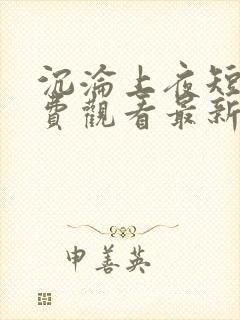 沉淪上夜短
費觀看最新
申善英